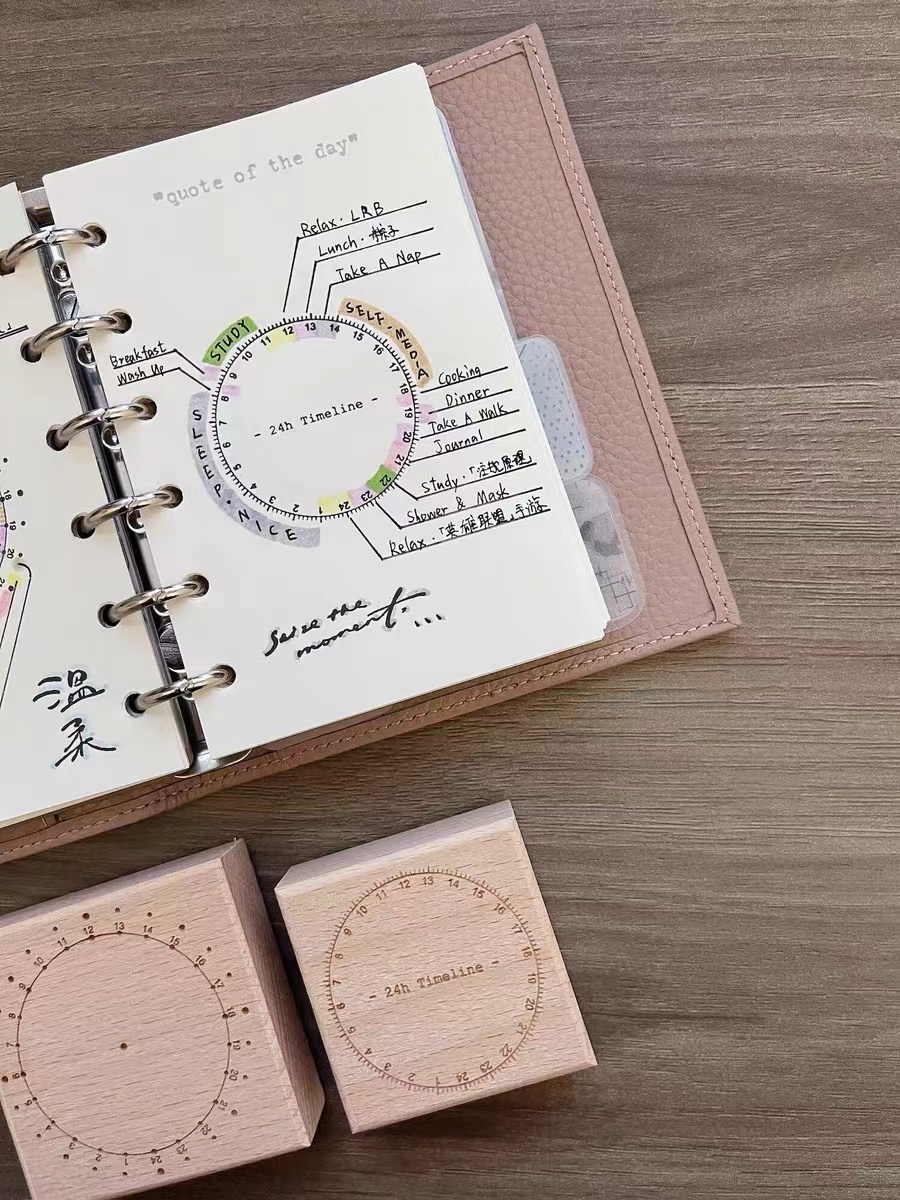 "quote of the day"
Relax · LRB
Lunch · 粽子
Take A Nap
STUDY
SELF-MEDIA
Breakfast
Wash Up
Cooking
Dinner
Take A Walk
Journal
Study ·
Shower & Mask
Relax · 「英雄联盟」手游
SLEEP · NICE
1 2 3 4 5 6 7 8 9 10 11 12 13 14 15 16 17 18 19 20 21 22 23 24
- 24h Timeline -
Seize the
moment...
温
柔
1 2 3 4 5 6 7 8 9 10 11 12 13 14 15 16 17 18 19 20 21 22 23 24
1 2 3 4 5 6 7 8 9 10 11 12 13 14 15 16 17 18 19 20 21 22 23 24
- 24h Timeline -